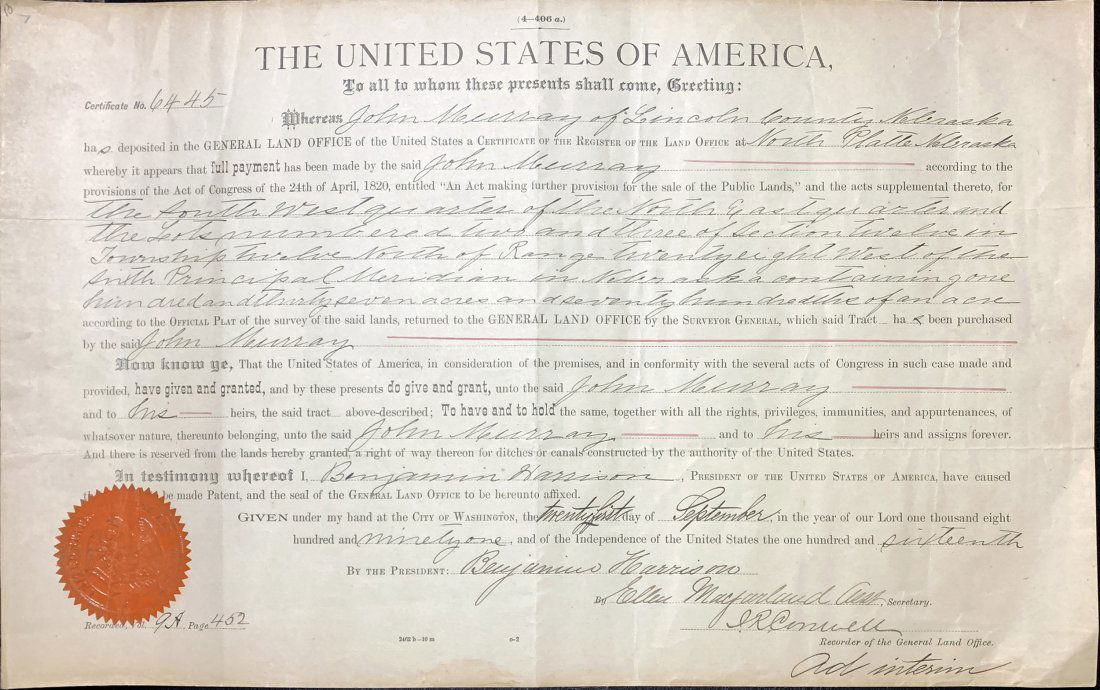 (4—406 a.)
THE UNITED STATES OF AMERICA,
To all to whom these presents shall come, Greeting:
Certificate No. 6445
Whereas John Murray of Lincoln County Nebraska
has deposited in the GENERAL LAND OFFICE of the United States a CERTIFICATE OF THE REGISTER OF THE LAND OFFICE at North Platte Nebraska
whereby it appears that full payment has been made by the said John Murray according to the
provisions of the Act of Congress of the 24th of April, 1820, entitled “An Act making further provision for the sale of the Public Lands,” and the acts supplemental thereto, for
the South West quarter of the North East quarter and
the Lots numbered two and three of Section twelve in
Township twelve North of Range twenty eight West of the
Sixth Principal Meridian in Nebraska containing one
hundred and thirty seven acres and seventy hundredths of an acre
according to the OFFICIAL PLAT of the survey of the said lands, returned to the GENERAL LAND OFFICE by the SURVEYOR GENERAL, which said Tract has been purchased
by the said John Murray
Now know ye, That the United States of America, in consideration of the premises, and in conformity with the several acts of Congress in such case made and
provided, have given and granted, and by these presents do give and grant, unto the said John Murray
and to his heirs, the said tract above-described; To have and to hold the same, together with all the rights, privileges, immunities, and appurtenances, of
whatsoever nature, thereunto belonging, unto the said John Murray and to his heirs and assigns forever.
And there is reserved from the lands hereby granted, a right of way thereon for ditches or canals constructed by the authority of the United States.
In testimony whereof I, Benjamin Harrison, PRESIDENT OF THE UNITED STATES OF AMERICA, have caused
be made Patent, and the seal of the GENERAL LAND OFFICE to be hereunto affixed.
GIVEN under my hand at the CITY OF WASHINGTON, the twenty first day of September, in the year of our Lord one thousand eight
hundred and ninety one, and of the Independence of the United States the one hundred and sixteenth
BY THE PRESIDENT: Benjamin Harrison
By Ellen Macfarland Asst., Secretary.
I. R. Conwell
Recorded, Vol. 9A, Page 452
2462 b—10 m
o-2
Recorder of the General Land Office.
Ad interim